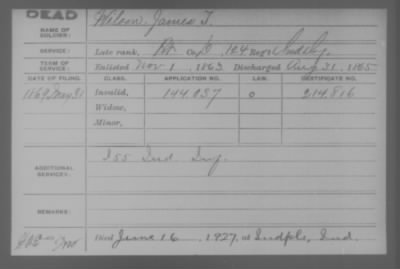 DEAD
NAME OF SOLDIER: Wilson, James T.
SERVICE: Late rank, Pvt Co. 124 Reg't Ind. Inf.
TERM OF SERVICE: Enlisted Nov 1, 1863 Discharged Aug 31, 1865
DATE OF FILING. CLASS. APPLICATION NO. LAW. CERTIFICATE NO.
1869 May 31 Invalid, 144.037 0 214.816
Widow,
Minor,
ADDITIONAL SERVICES: 155 Ind Inf.
REMARKS:
Died June 16, 1927, at Indpls, Ind.